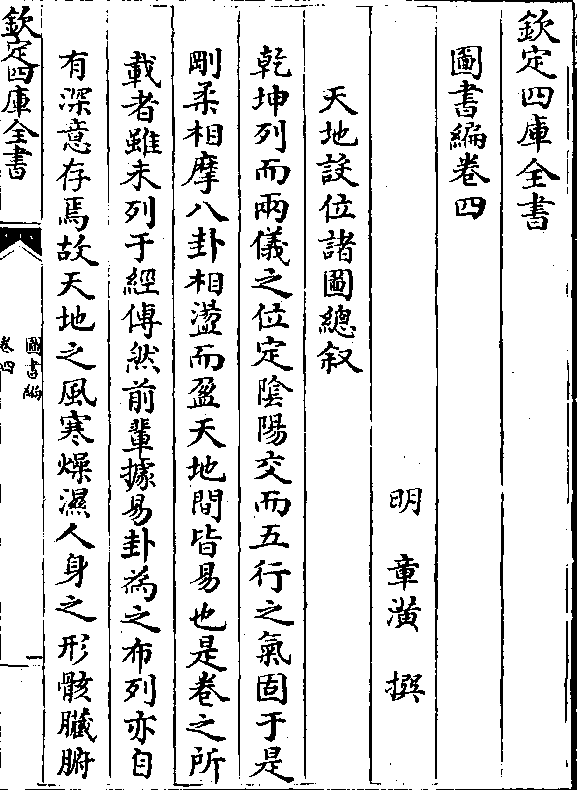 欽定四庫全書
圖書編卷四
明 章潢 撰
天地設位諸圖總叙
乾坤列而兩儀之位定陰陽交而五行之氣固于是
剛柔相摩八卦相盪而盈天地間皆易也是卷之所
載者雖未列于經傳然前輩據易卦為之布列亦自
有深意存焉故天地之風寒燥濕人身之形骸臟腑
欽定四庫全書
圖書編
卷四
一